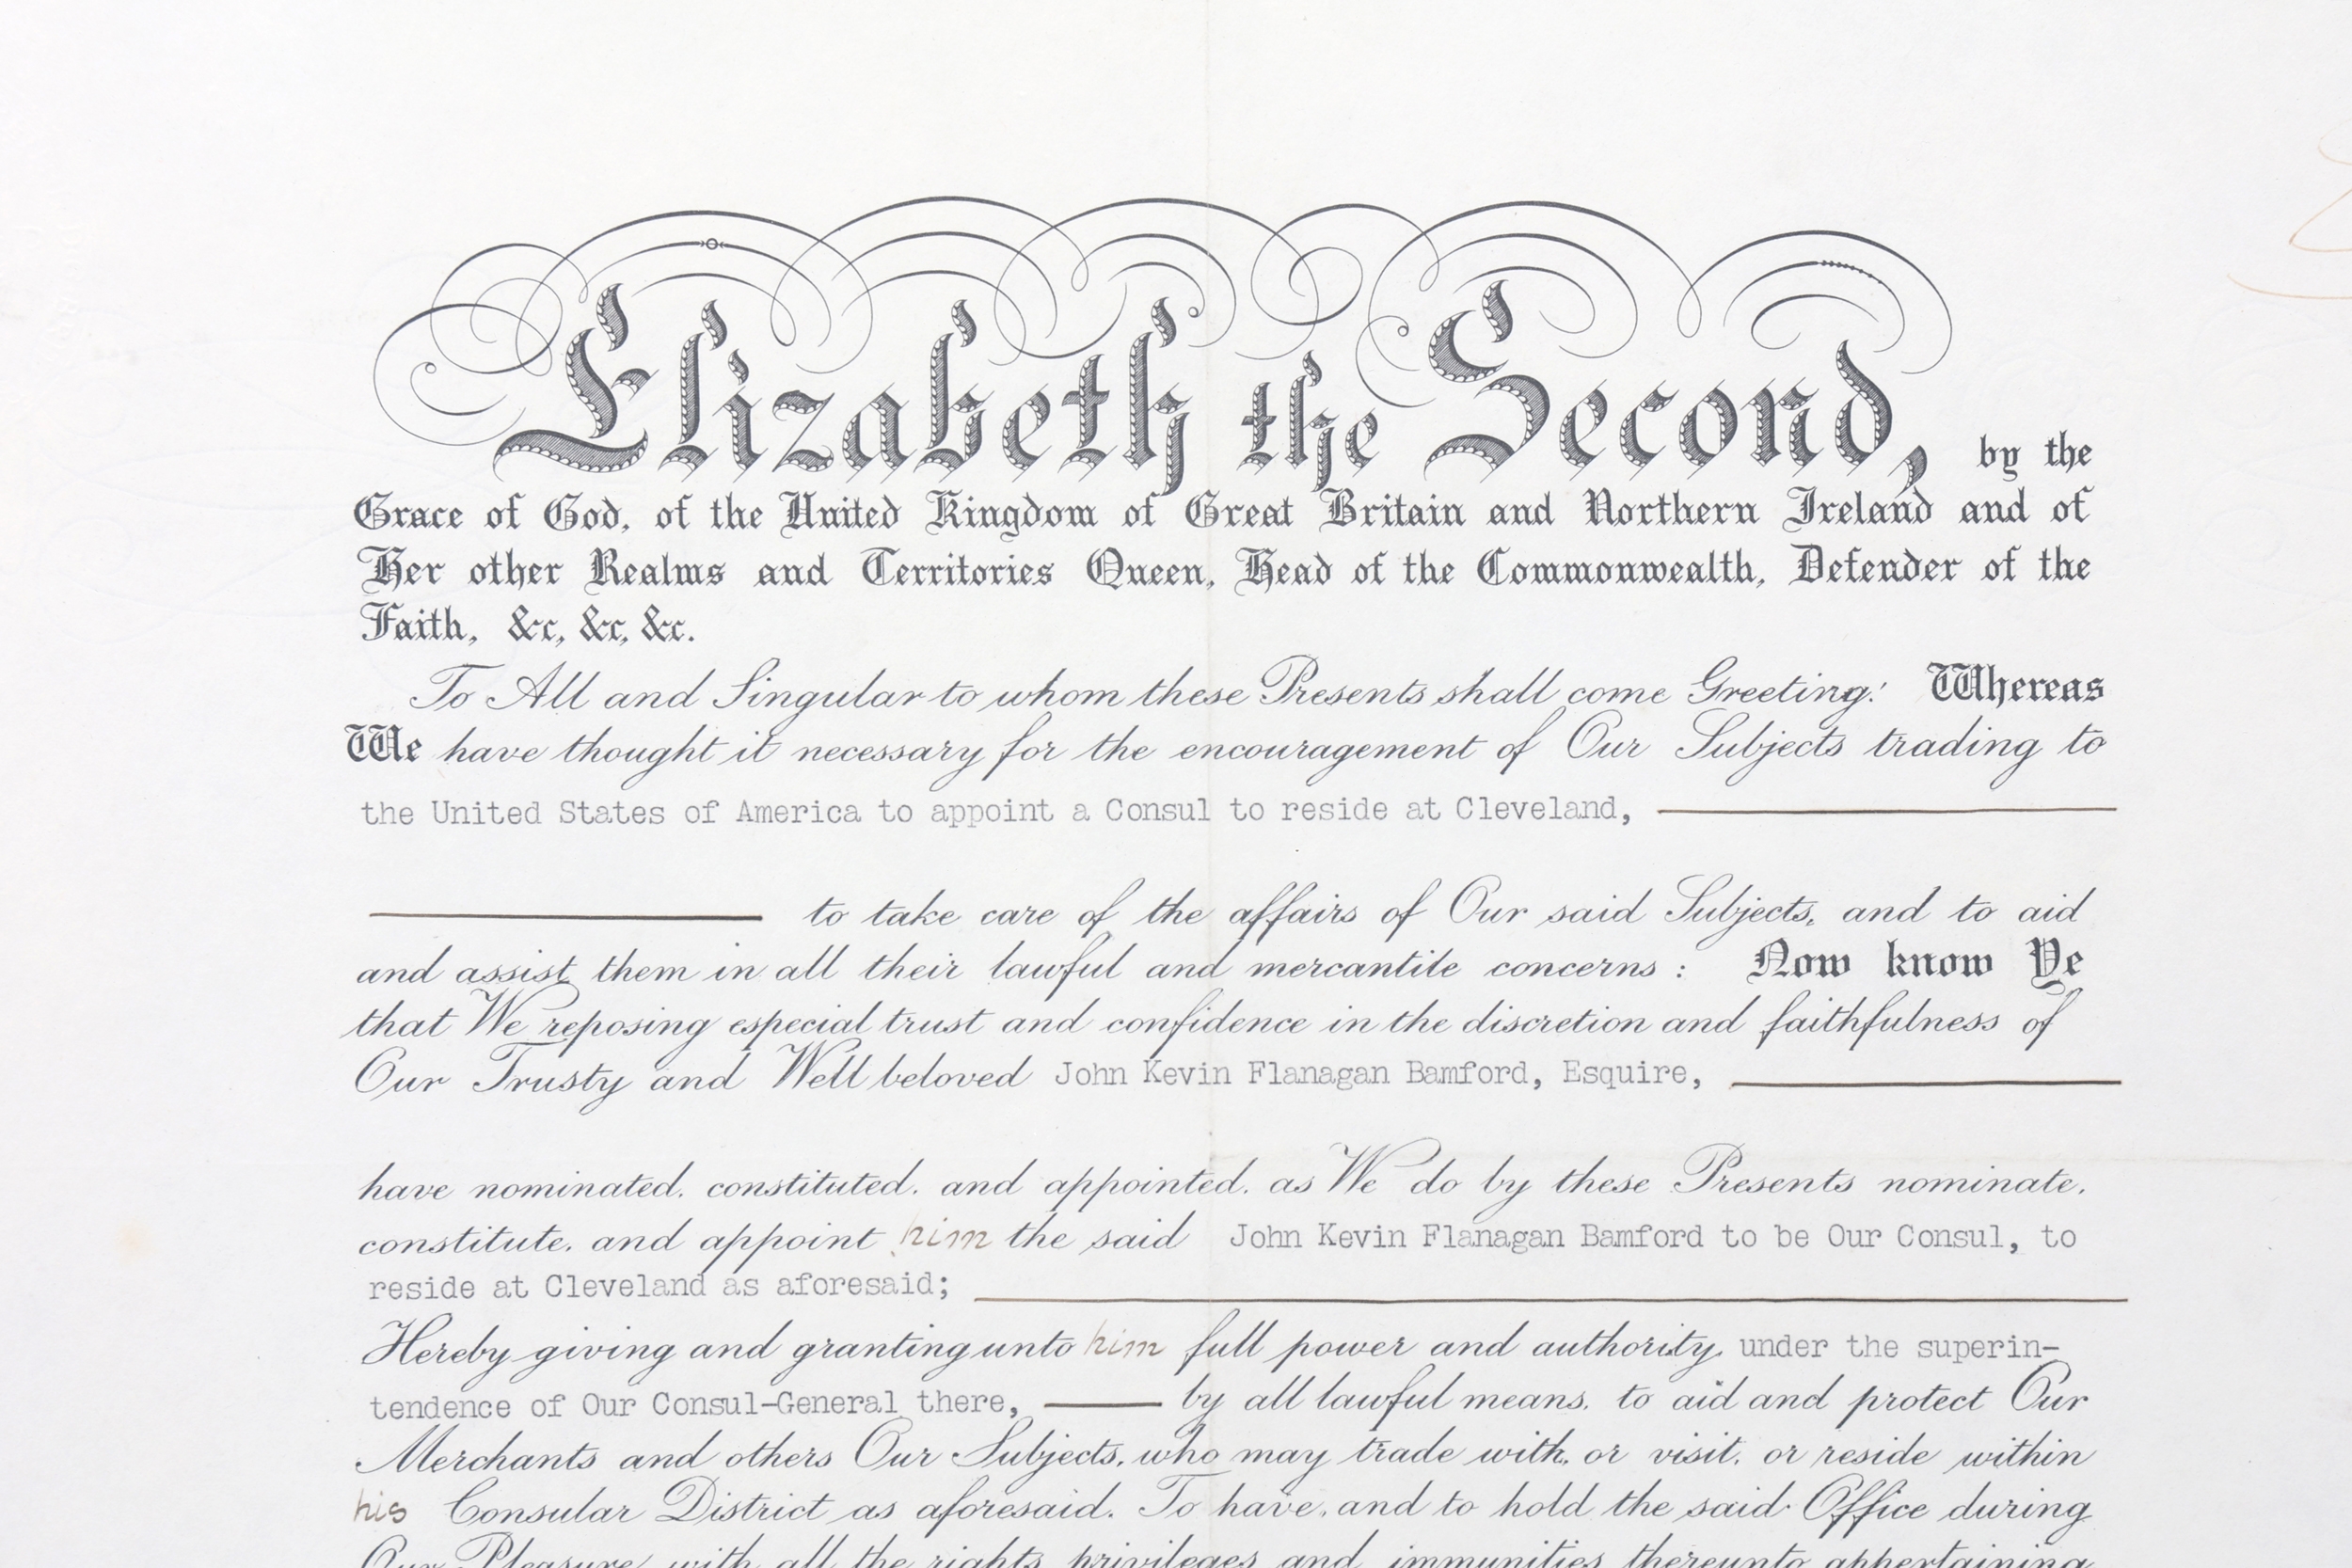 Elizabeth the Second, by the
Grace of God, of the United Kingdom of Great Britain and Northern Ireland and of
Her other Realms and Territories Queen, Head of the Commonwealth, Defender of the
Faith, &c, &c, &c.
To All and Singular to whom these Presents shall come Greeting: Whereas
We have thought it necessary for the encouragement of Our Subjects trading to
the United States of America to appoint a Consul to reside at Cleveland,
to take care of the affairs of Our said Subjects, and to aid
and assist them in all their lawful and mercantile concerns: Now know Ye
that We reposing especial trust and confidence in the discretion and faithfulness of
Our Trusty and Well beloved John Kevin Flanagan Bamford, Esquire,
have nominated, constituted, and appointed, as We do by these Presents nominate,
constitute, and appoint him the said John Kevin Flanagan Bamford to be Our Consul, to
reside at Cleveland as aforesaid;
Hereby giving and granting unto him full power and authority, under the superin-
tendence of Our Consul-General there, by all lawful means, to aid and protect Our
Merchants and others Our Subjects, who may trade with, or visit, or reside within
his Consular District as aforesaid. To have, and to hold the said Office during
Our Pleasure, with all the rights, privileges and immunities thereunto appertaining